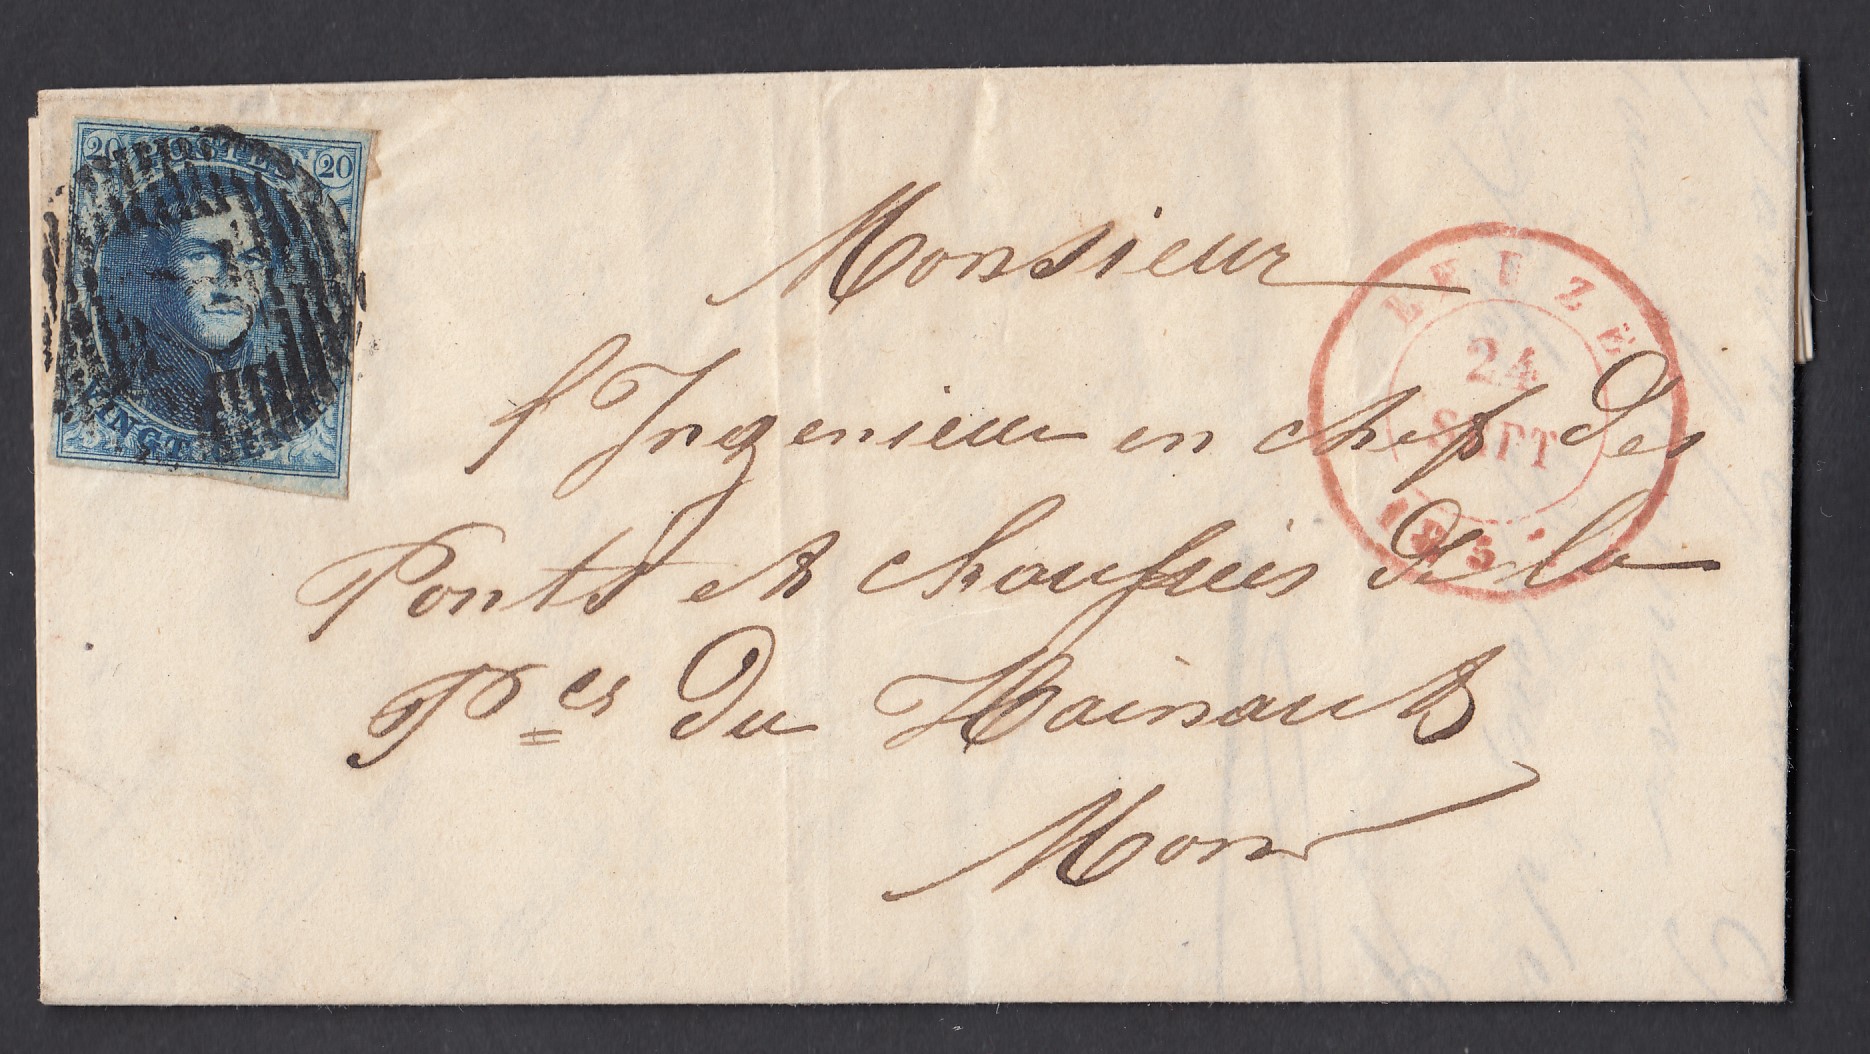 20 POSTES 20
VINGT CENT
Monsieur
l'Ingenieur en chef des
Ponts et chaussées de la
P^ces du Hainaut
Mons
LEUZE
24
SEPT
185